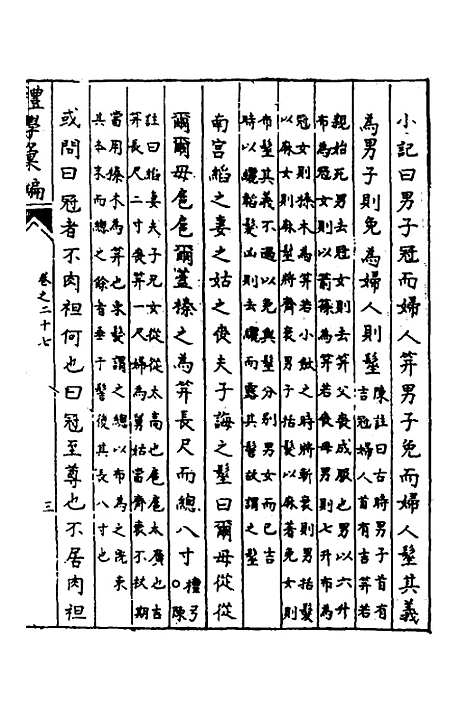 小記曰男子冠而婦人笄男子免而婦人髽其義
為男子則免為婦人則髽
陳註曰古時男子首有
吉冠婦人首有吉笄若
親始死男去冠女則去笄父喪成服也男以六升
布為冠女則以箭篠為笄若喪母男則七升布為
冠女則榛木為笄若小斂之時將斬衰則男括髮
以麻女則麻髽將齊衰男子括髮以麻著免女則
布髽其義不過以免與髽分別男女而已吉
時以纚韜髮凶則去纚而露其髻故謂之髽
南宮縚之妻之姑之喪夫子誨之髽曰爾毋從從
爾爾毋扈扈爾蓋榛之為笄長尺而總八寸
禮弓
○陳
註曰縚妻夫子兄女從從太高也扈扈太廣也古
笄長尺二寸喪笄一尺婦為舅姑當齊衰不杖期
當用榛木為笄也束髮謂之總以布為之既束
其本末而總之餘者垂于髻後其長八寸也
或問曰冠者不肉袒何也曰冠至尊也不居肉袒
禮學彙編
卷之二十七
三